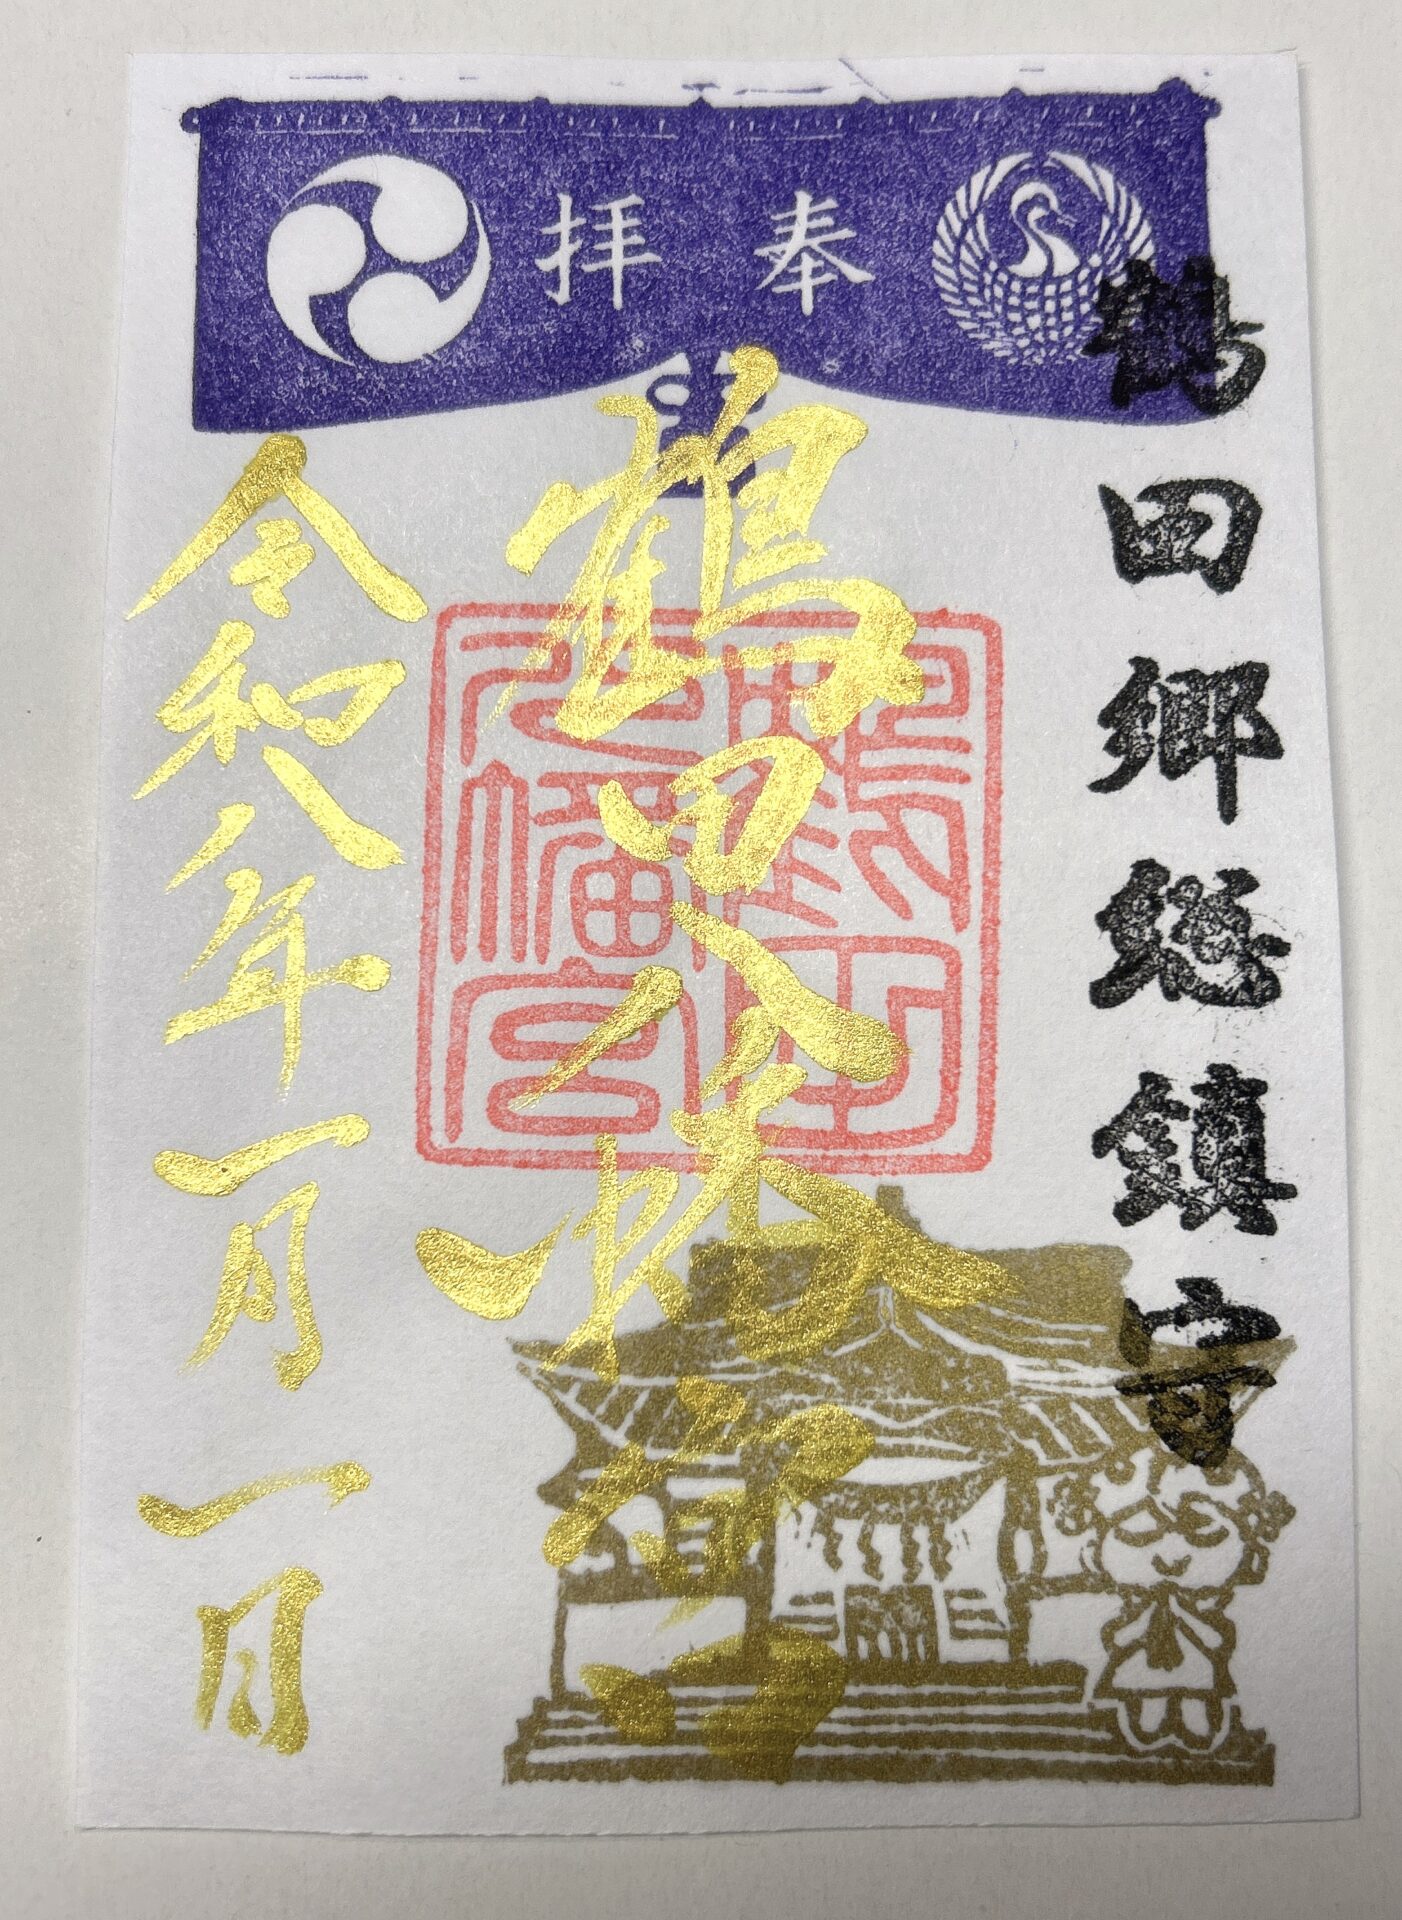 奉拝
鶴田郷総鎮守
鶴田八幡宮
鶴田八幡宮
令和八年一月一日